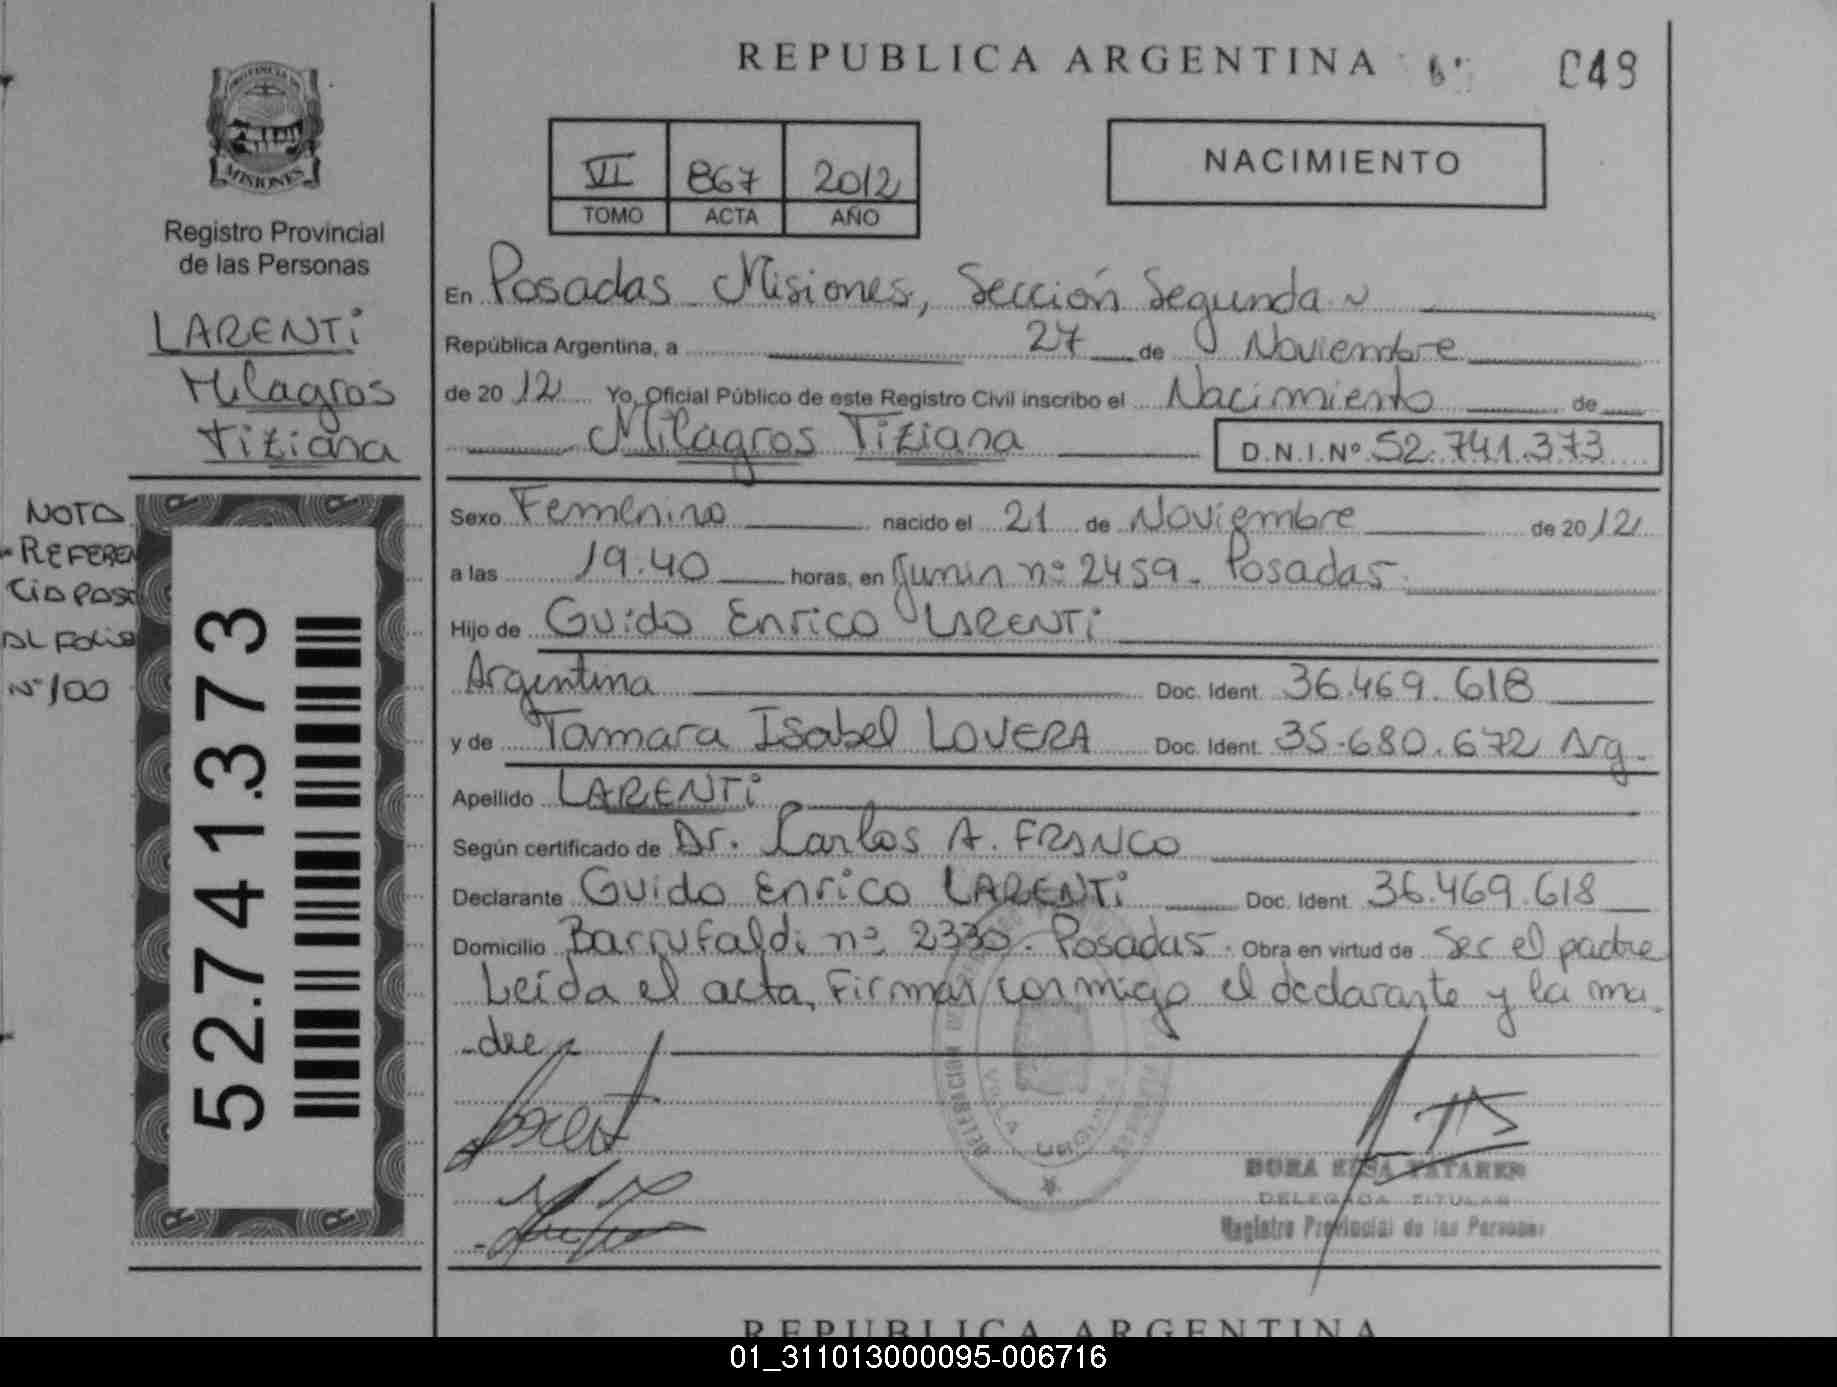 REPUBLICA ARGENTINA
049
PROVINCIA DE
MISIONES
Registro Provincial
de las Personas
LARENTi
Milagros
Tiziana
VI 867 2012
TOMO ACTA AÑO
NACIMIENTO
En Posadas Misiones, Sección Segunda
República Argentina, a 27 de Noviembre
de 2012 Yo, Oficial Público de este Registro Civil inscribo el Nacimiento de
Milagros Tiziana D.N.I.Nº 52.741.373
Sexo Femenino nacido el 21 de Noviembre de 2012
a las 19.40 horas, en Junin nº 2459. Posadas.
Hijo de Guido Enrico LARENTi
Argentina Doc. Ident. 36.469.618
y de Tamara Isabel LOVERA Doc. Ident. 35.680.672 Arg.
Apellido LARENTi
Según certificado de Dr. Carlos A. FRANCO
Declarante Guido Enrico LARENTi Doc. Ident. 36.469.618
Domicilio Barrufaldi nº 2330. Posadas. Obra en virtud de Ser el padre
Leída el acta, Firman conmigo el declarante y la ma
-dre
NOTA
REFEREN
CIA PASA
AL FOLIO
Nº 100
52.741.373
VILLA URQUIZA
DELEGADA TITULAR
Registro Provincial de las Personas
REPUBLICA ARGENTINA
01_311013000095-006716